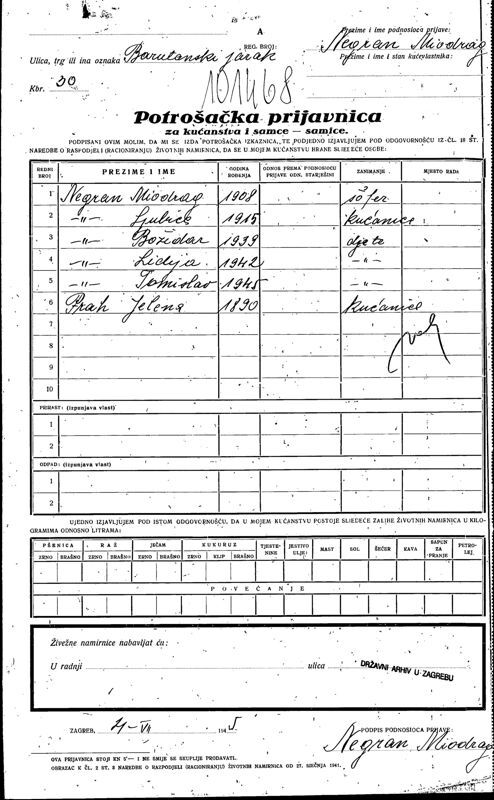 A
REG. BROJ:
Prezime i ime podnosioca prijave:
Negran Miodrag
Ulica, trg ili ina oznaka Barutanski jarak
Prezime i ime i stan kućevlasnika:
Kbr. 30
101468
Potrošačka prijavnica
za kućanstva i samce — samice.
POTPISANI OVIM MOLIM, DA MI SE IZDA POTROŠAČKA ISKAZNICA, TE PODJEDNO IZJAVLJUJEM POD ODGOVORNOŠĆU IZ ČL. 18 ST.
NAREDBE O RASPODJELI (RACIONIRANJU) ŽIVOTNIH NAMIRNICA, DA SE U MOJEM KUĆANSTVU HRANE SLJEDEĆE OSOBE:
REDNI BROJ PREZIME I IME GODINA ROĐENJA ODNOS PREMA PODNOSIOCU PRIJAVE ODN. STARJEŠINI ZANIMANJE MJESTO RADA
1 Negran Miodrag 1908 šofer
2 —"— Ljubica 1915 kućanica
3 —"— Božidar 1939 djete
4 —"— Lidija 1942 —"—
5 —"— Tomislav 1945 —"—
6 Prah Jelena 1890 kućanica
7
8
9
10
PRIRAST: (ispunjava vlast)
1
2
ODPAD: (ispunjava vlast)
1
2
UJEDNO IZJAVLJUJEM POD ISTOM ODGOVORNOŠĆU, DA U MOJEM KUĆANSTVU POSTOJE SLJEDEĆE ZALIHE ŽIVOTNIH NAMIRNICA U KILO-
GRAMIMA ODNOSNO LITRAMA:
PŠENICA RAŽ JEČAM KUKURUZ TJESTE-NINE JESTIVO ULJE MAST SOL ŠEĆER KAVA SAPUN ZA PRANJE PETRO-LEJ
ZRNO BRAŠNO ZRNO BRAŠNO ZRNO BRAŠNO ZRNO KLIP BRAŠNO
POVEĆANJE
Živežne namirnice nabavljat ću:
U radnji ulica
DRŽAVNI ARHIV U ZAGREBU
ZAGREB, 4-VII 1945
POTPIS PODNOSIOCA PRIJAVE:
Negran Miodrag
OVA PRIJAVNICA STOJI KN 5— I NE SMIJE SE SKUPLJE PRODAVATI.
OBRAZAC K ČL. 2 ST. 2 NAREDBE O RAZPODJELI (RACIONIRANJU) ŽIVOTNIH NAMIRNICA OD 27. SIEČNJA 1941.